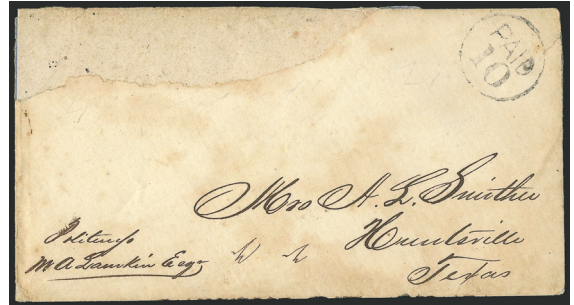 PAID
10
Mrs A. L. Smither
Huntsville
Texas
Politeness
M A Lamkin Esqr